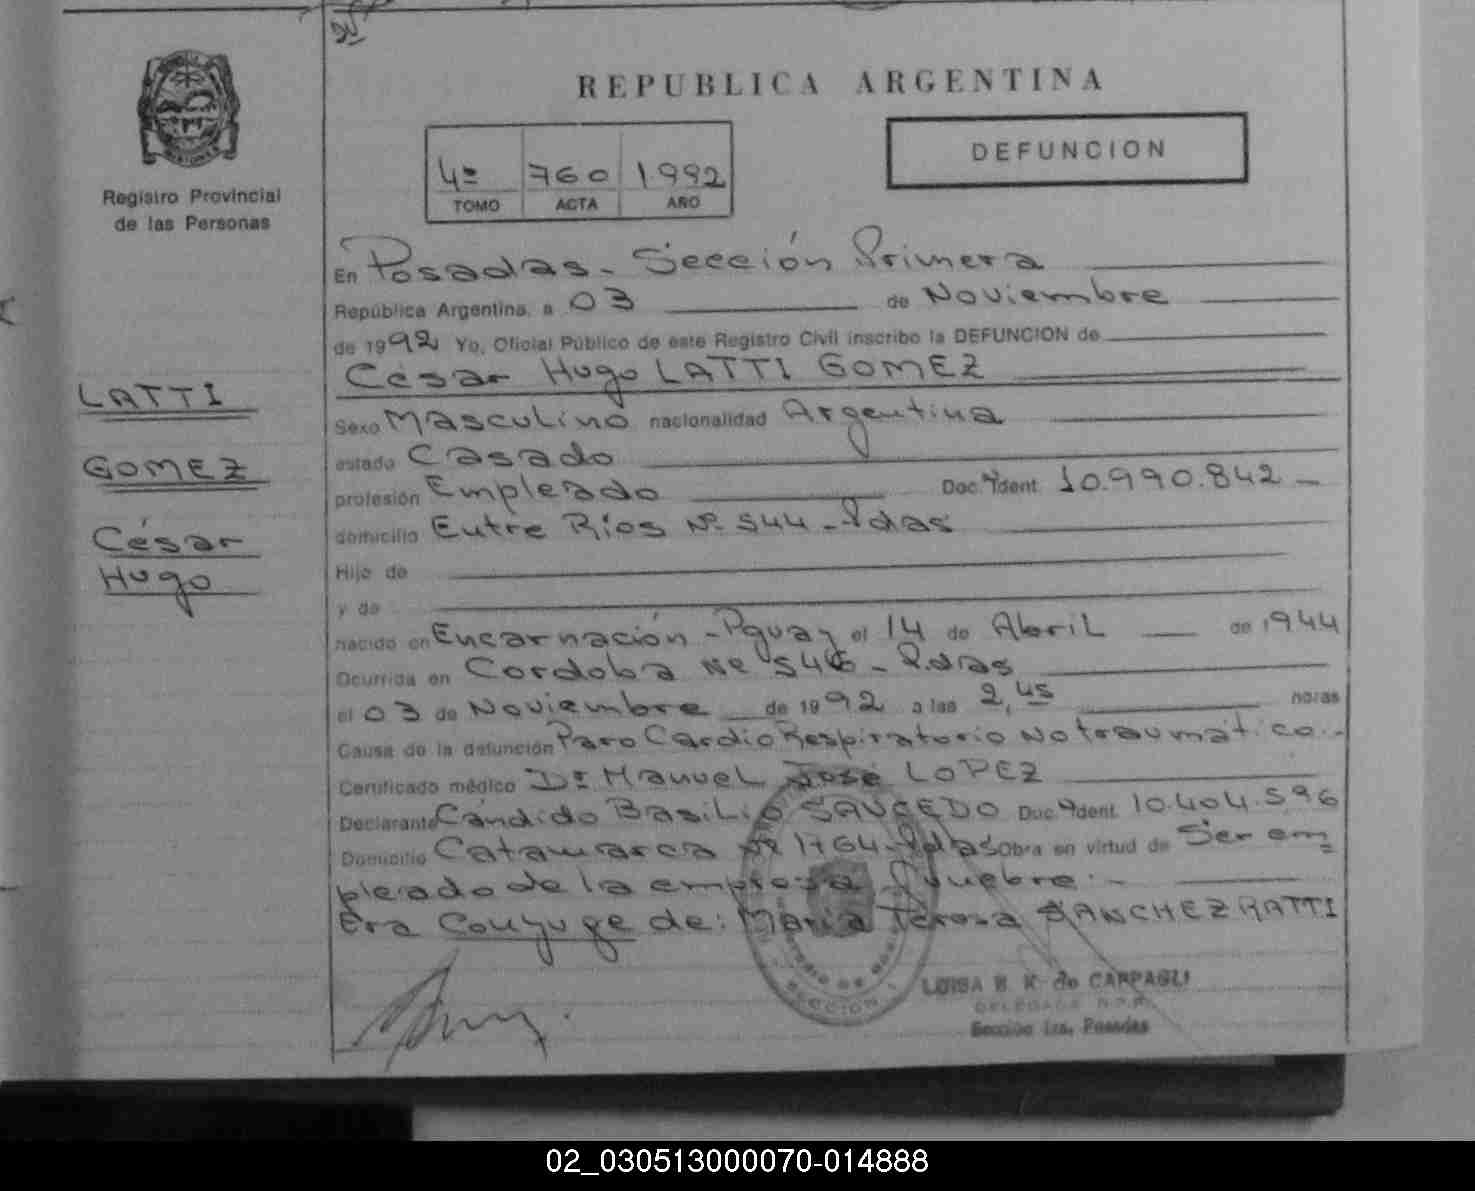 REPUBLICA ARGENTINA
DEFUNCION
4º 760 1992
TOMO ACTA AÑO
MISIONES
Registro Provincial
de las Personas
LATTI
GOMEZ
César
Hugo
En Posadas - Sección Primera
República Argentina, a 03 de Noviembre
de 1992 Yo, Oficial Público de este Registro Civil inscribo la DEFUNCION de
César Hugo LATTI GOMEZ
Sexo Masculino nacionalidad Argentina
estado Casado
profesión Empleado Doc. Ident. 10.990.842 -
domicilio Entre Ríos Nº 544 - Pdas
Hijo de
y de
nacido en Encarnación - Pguay el 14 de Abril de 1944
Ocurrida en Cordoba Nº 546 - Pdas
el 03 de Noviembre de 1992 a las 2,45 horas
Causa de la defunción Paro Cardio Respiratorio No traumático.-
Certificado médico Dr Manuel José LOPEZ
Declarante Cándido Basilio SAUCEDO Doc. Ident. 10.404.596
Domicilio Catamarca Nº 1764 - Pdas Obra en virtud de Ser em=
pleado de la empresa fúnebre.-
Era Conyuge de: María Teresa SANCHEZ RATTI
LUISA B. K. de CARPAGLI
DELEGADA R.P.P.
Sección 1ra. Posadas
02_030513000070-014888